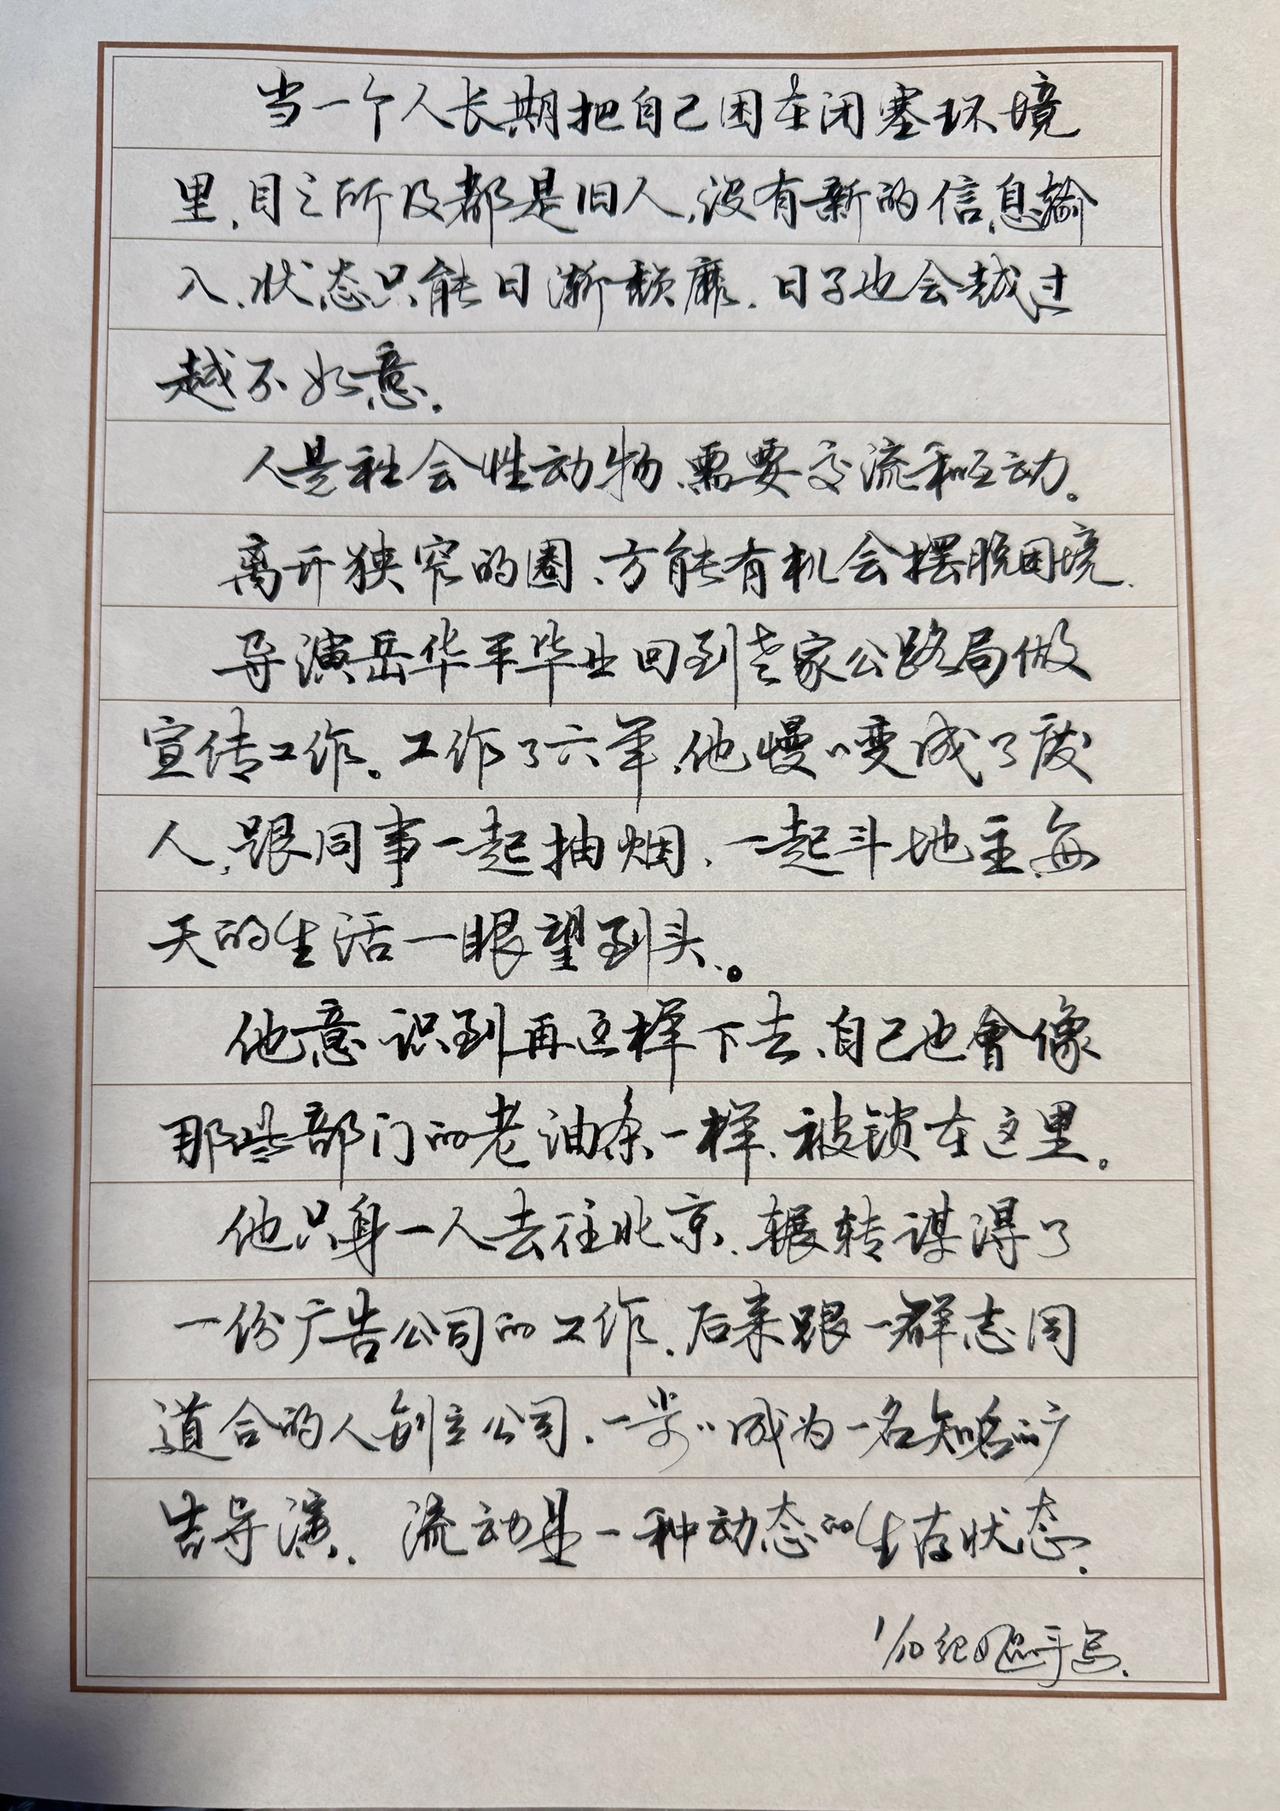 当一个人长期把自己困在闭塞环境
里,目之所及都是旧人,没有新的信息输
入,状态只能日渐颓靡.日子也会越过
越不如意.
人是社会性动物、需要交流和互动。
离开狭窄的圈、方能有机会摆脱困境.
导演岳华平毕业回到老家公路局做
宣传工作。工作了六年,他慢〃变成了废
人,跟同事一起抽烟、一起斗地主,每
天的生活一眼望到头。
他意识到再这样下去、自己也會像
那些部门的老油条一样、被锁在这里。
他只身一人去往北京.辗转谋得了
一份广告公司的工作.后来跟一群志同
道合的人创立公司、一步〃成为一名知名的广
告导演.流动是一种动态的生存状态.
1/10 纪 手写.